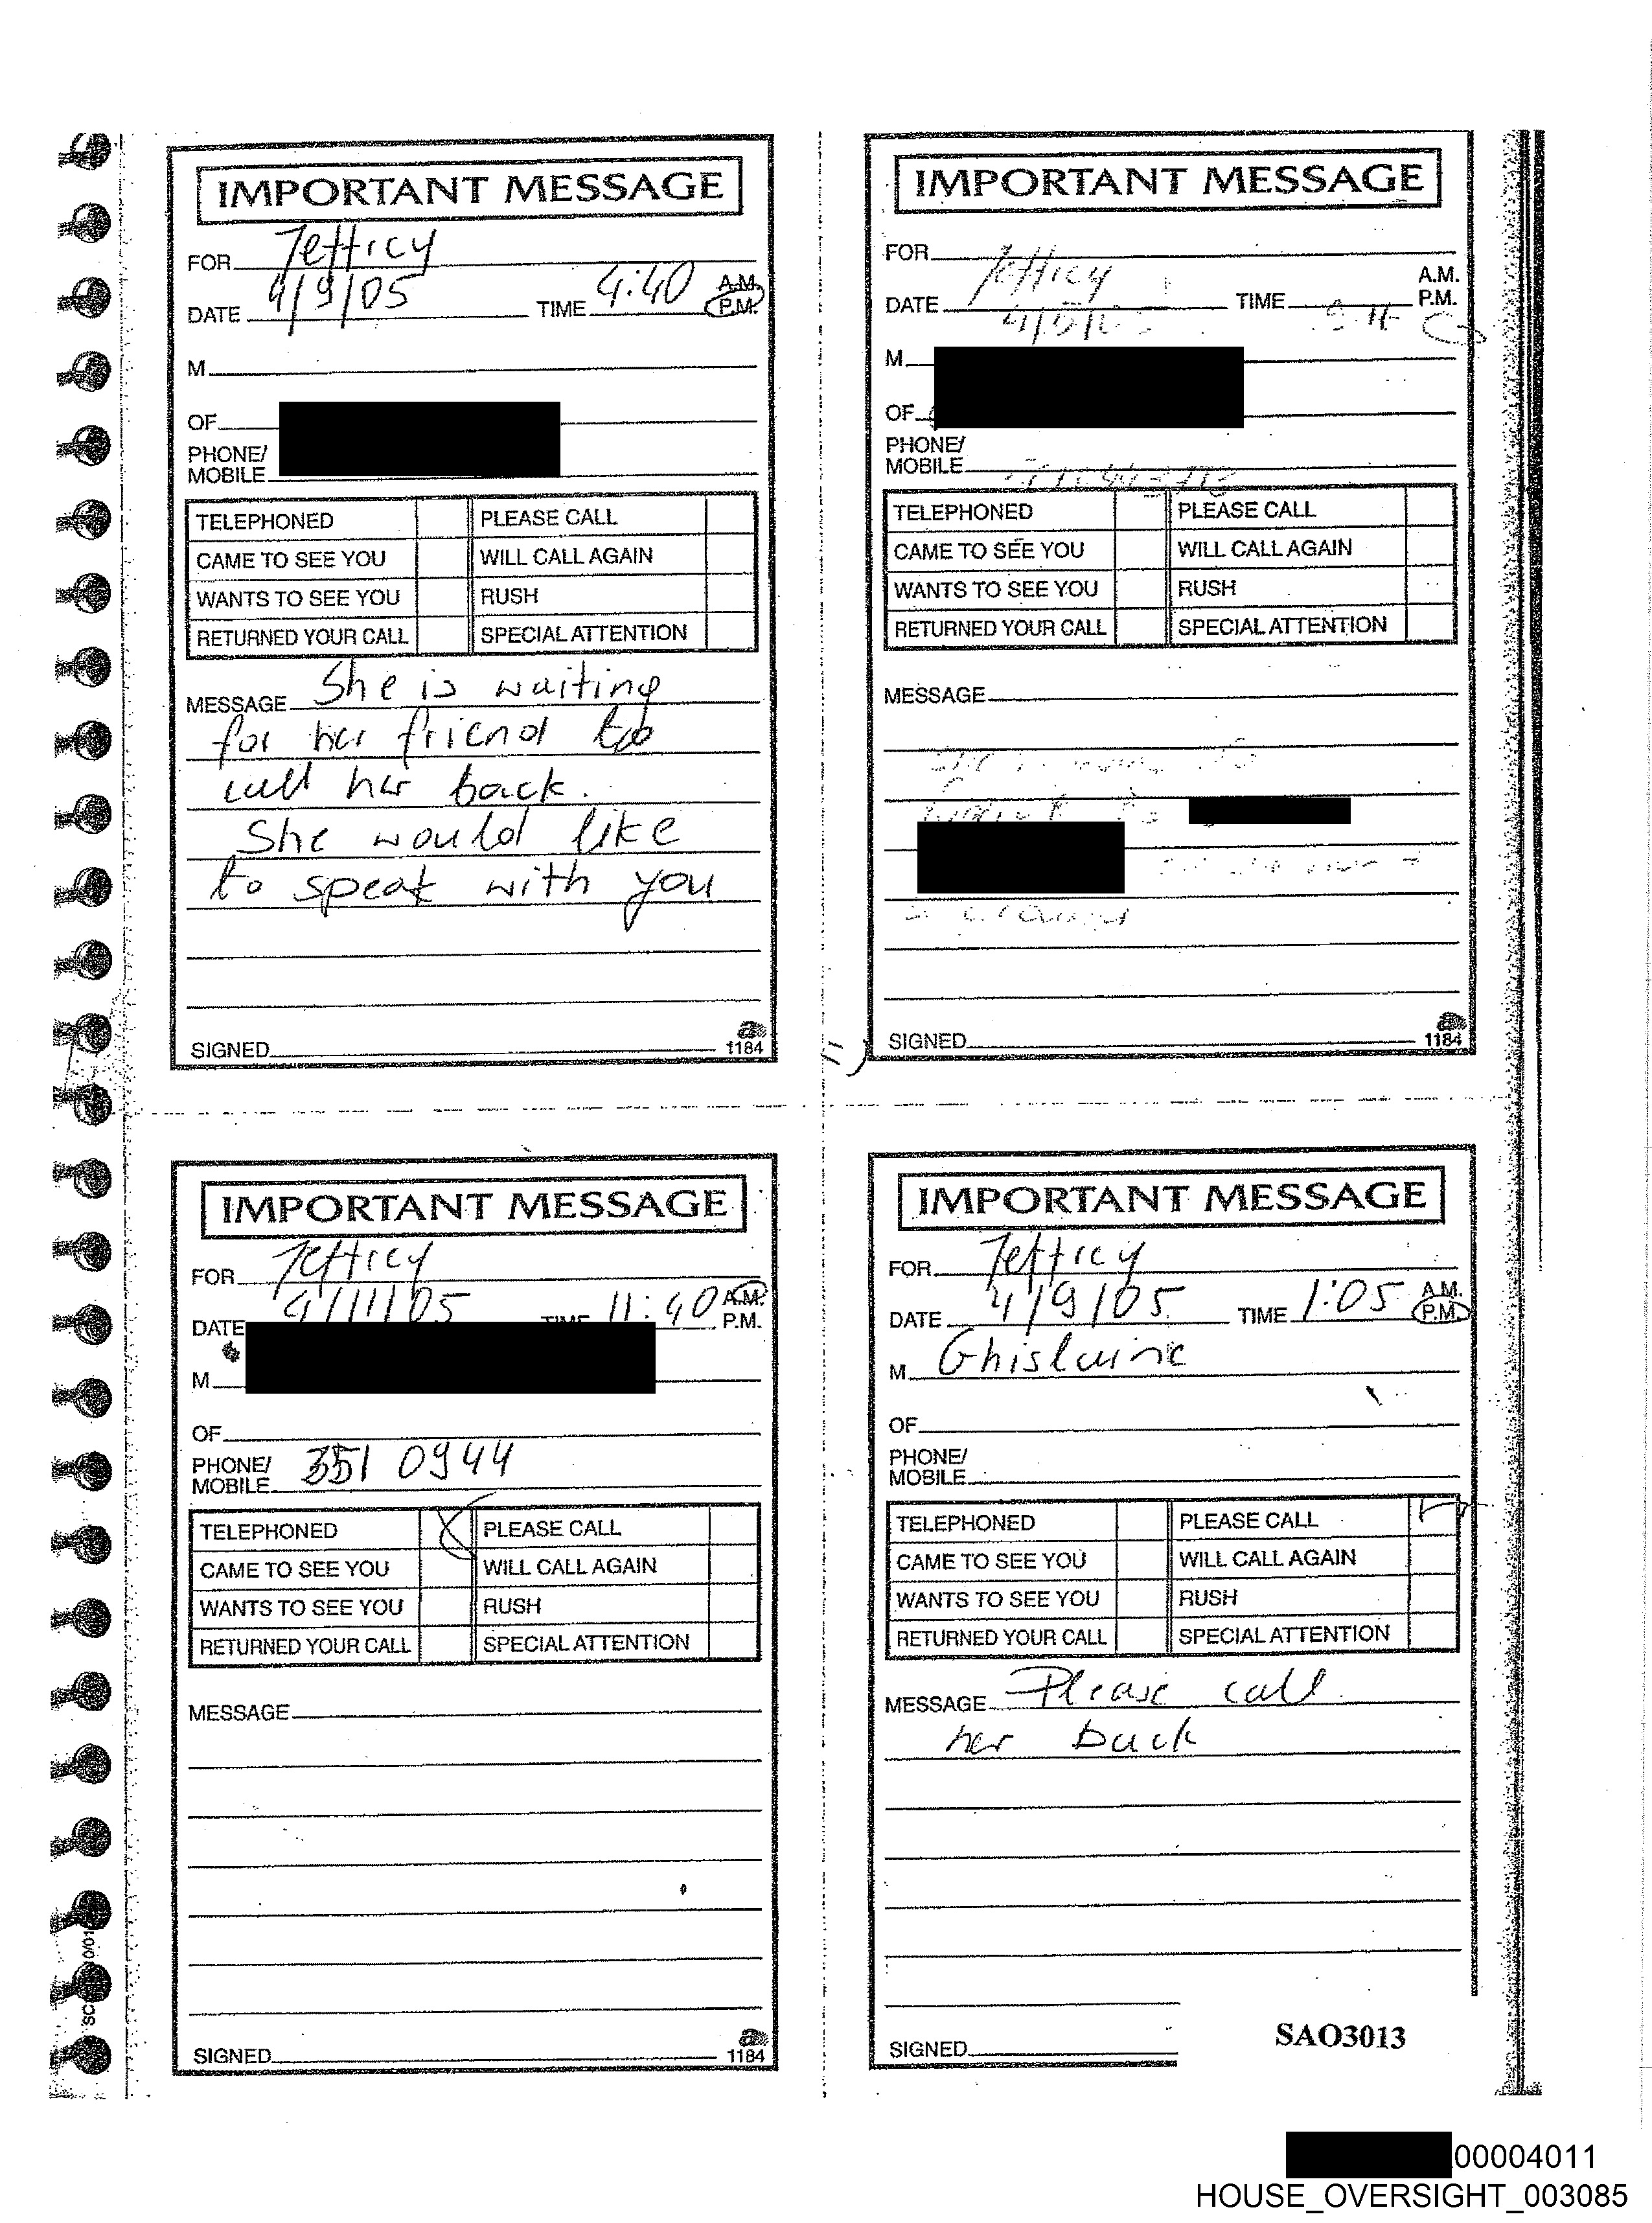 IMPORTANT MESSAGE
FOR Jeffrey
DATE 4/9/05 TIME 4:40 A.M.
P.M.
M
OF
PHONE/
MOBILE
TELEPHONED PLEASE CALL
CAME TO SEE YOU WILL CALL AGAIN
WANTS TO SEE YOU RUSH
RETURNED YOUR CALL SPECIAL ATTENTION
MESSAGE She is waiting
for her friend to
call her back.
She would like
to speak with you
SIGNED
1184
IMPORTANT MESSAGE
FOR Jeffrey
DATE TIME A.M.
P.M.
M
OF
PHONE/
MOBILE
TELEPHONED PLEASE CALL
CAME TO SEE YOU WILL CALL AGAIN
WANTS TO SEE YOU RUSH
RETURNED YOUR CALL SPECIAL ATTENTION
MESSAGE
SIGNED
1184
IMPORTANT MESSAGE
FOR Jeffrey
DATE 4/11/05 TIME 11:40 A.M.
P.M.
M
OF
PHONE/
MOBILE 351 0944
TELEPHONED PLEASE CALL
CAME TO SEE YOU WILL CALL AGAIN
WANTS TO SEE YOU RUSH
RETURNED YOUR CALL SPECIAL ATTENTION
MESSAGE
SIGNED
1184
IMPORTANT MESSAGE
FOR Jeffrey
DATE 4/9/05 TIME 1:05 A.M.
P.M.
M Ghislaine
OF
PHONE/
MOBILE
TELEPHONED PLEASE CALL
CAME TO SEE YOU WILL CALL AGAIN
WANTS TO SEE YOU RUSH
RETURNED YOUR CALL SPECIAL ATTENTION
MESSAGE Please call
her back
SIGNED
SAO3013
00004011
HOUSE_OVERSIGHT_003085